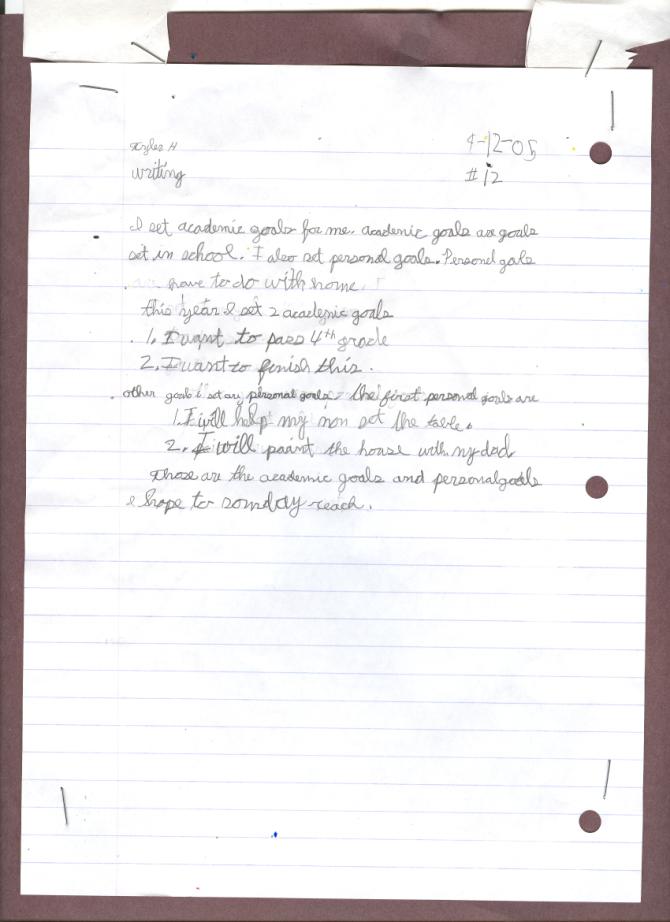 Tyler H 4-12-05
writing #12
I set academic goals for me. academic goals are goals
set in school. I also set personal goals. Personal goals
have to do with home.
this year I set 2 academic goals
1. I want to pass 4th grade
2. I want to finish this.
other goals I set are personal goals. the first personal goals are
1. I will help my mon set the table.
2. I will paint the house with my dad.
Those are the academic goals and personal goals
I hope to somday reach.